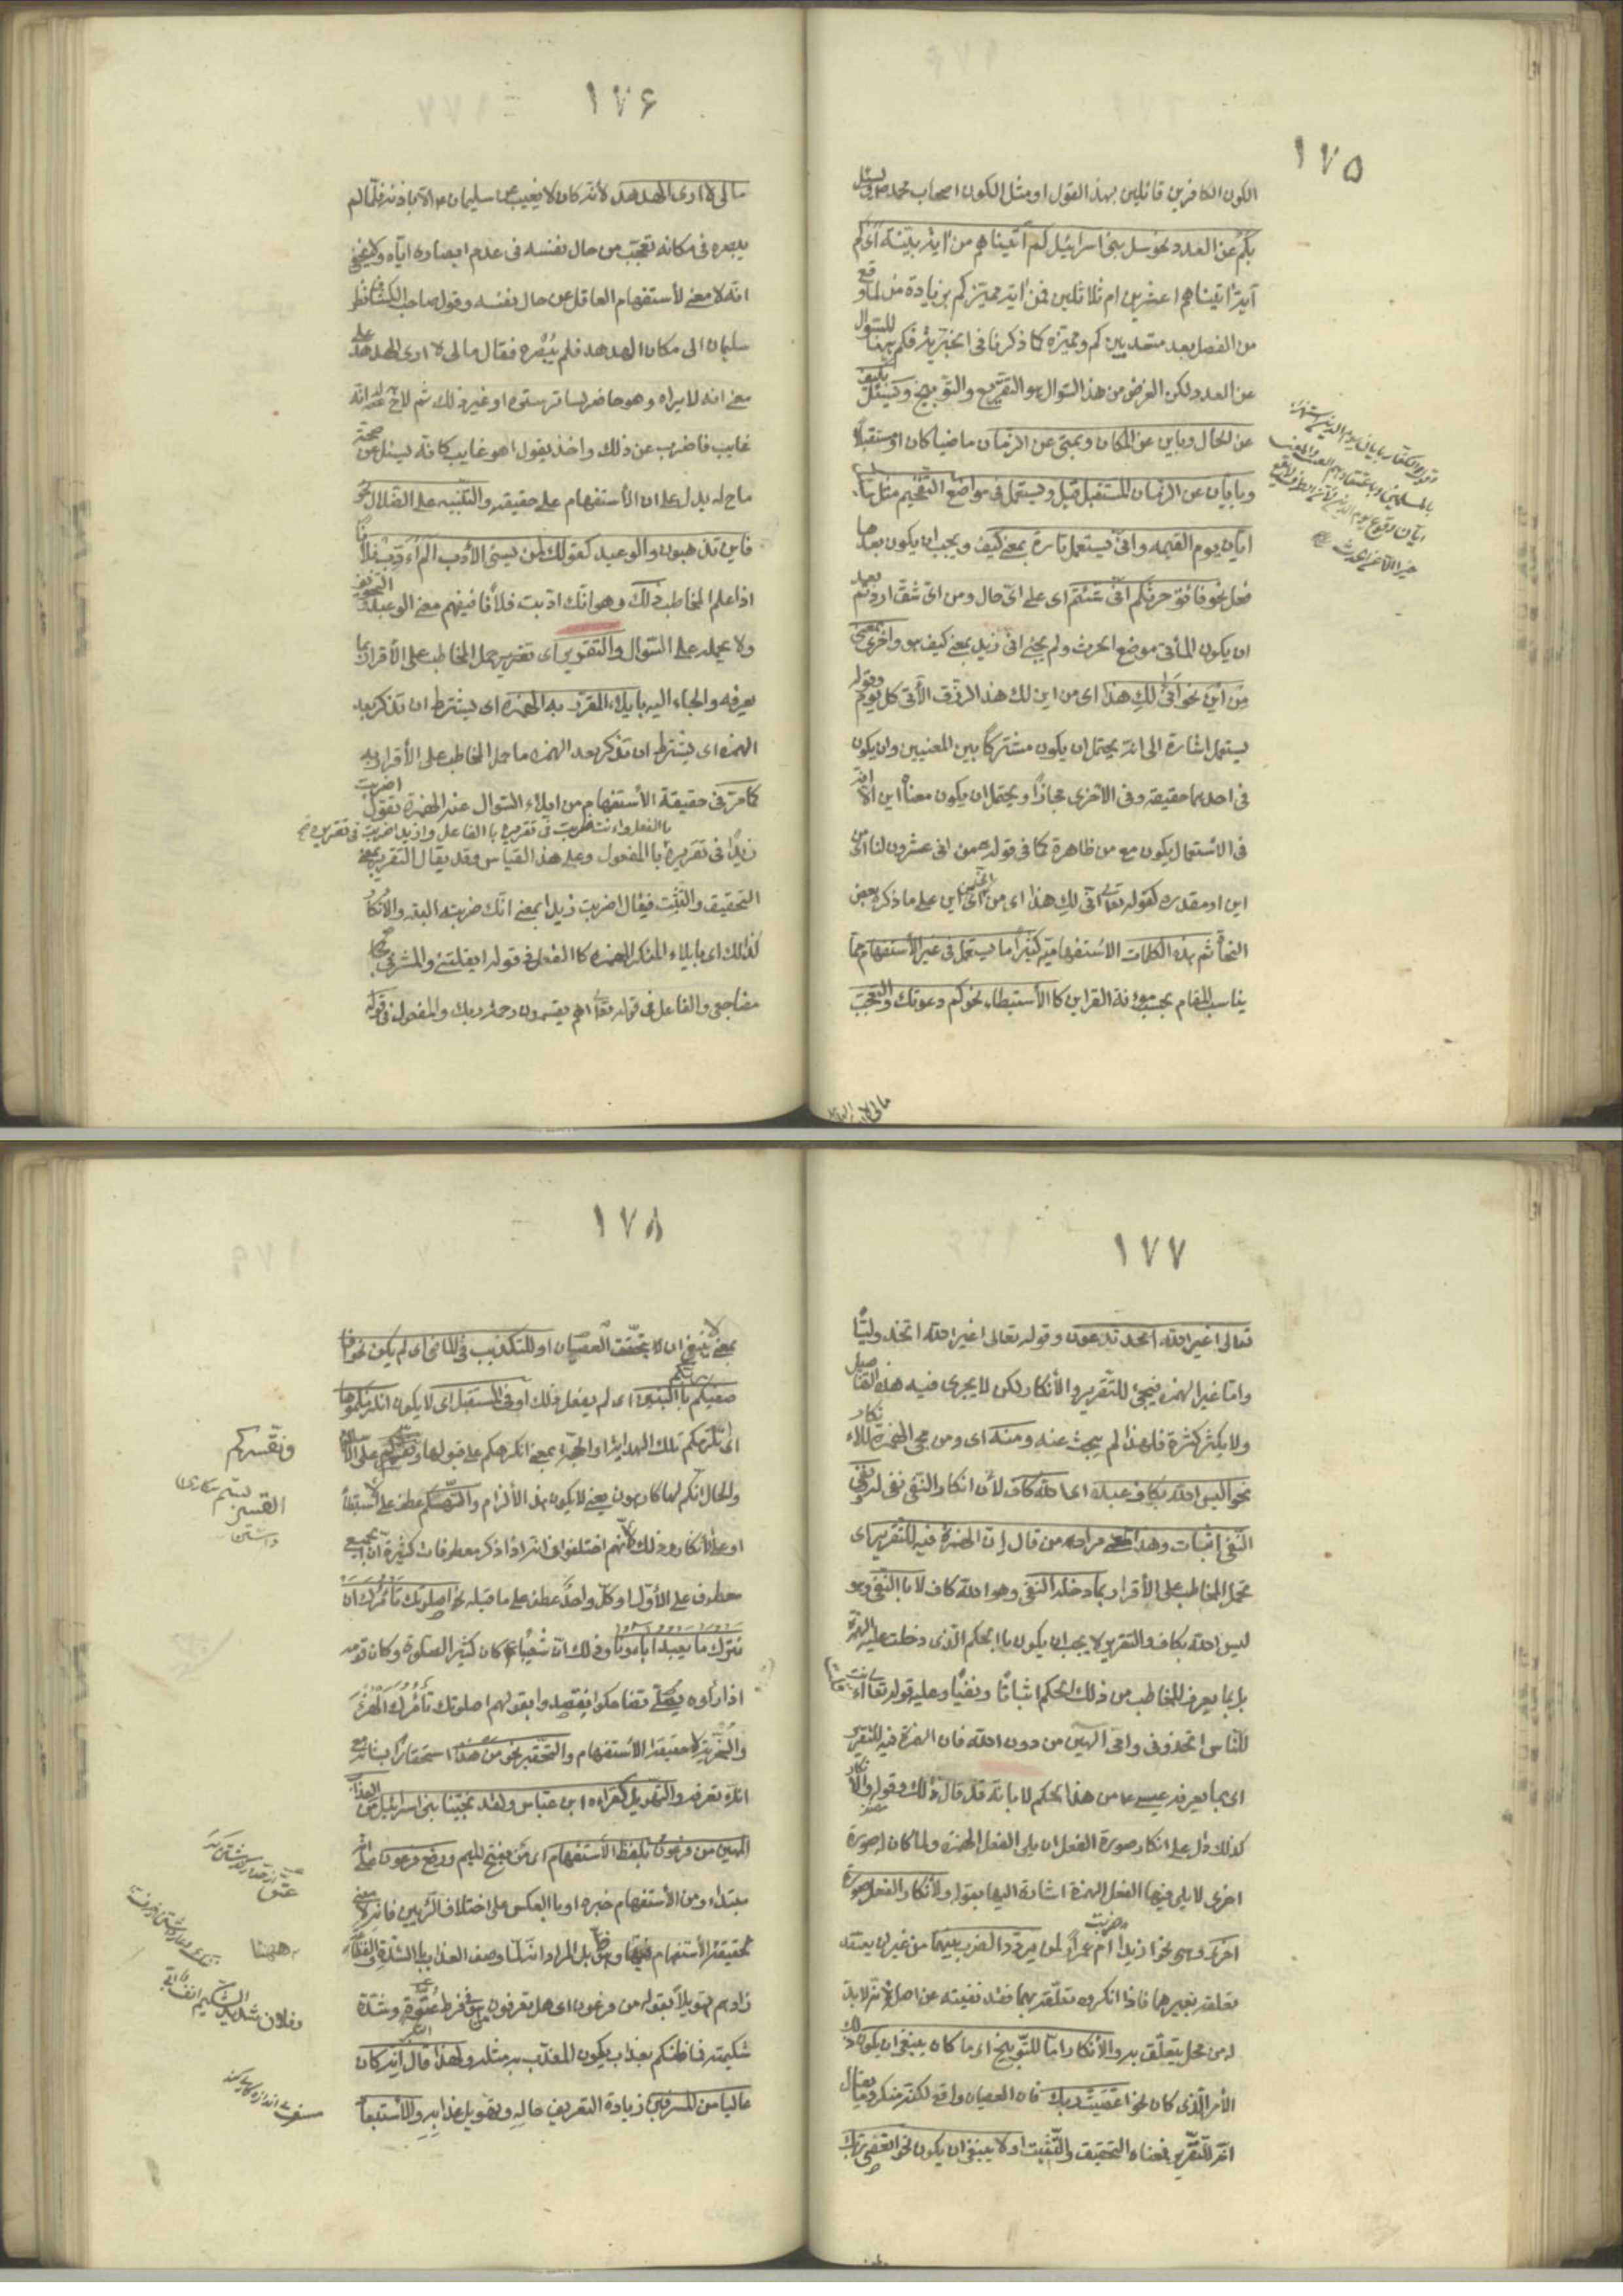 ١٧٥
الكون الكافرين قائلين بهذا القول او مثل الكون اصحاب محمد ص ويسئل
بكم عن العدد نحو سل بنى اسرائيل كم اتيناهم من اية بينة اى كم
آية اتيناهم اعشرين ام ثلاثين فمن اية مميز كم بزيادة من لما وقع
من الفصل بعد متعد بين كم ومميزه كما ذكرنا فى الخبرية فكم ههنا للسؤال
عن العدد لكن الغرض من هذا السؤال هو التقريع والتوبيخ ويسئل بكيف
عن الحال وباين عن المكان وبمتى عن الزمان ماضيا كان او مستقبلا
وبايان عن الزمان المستقبل قيل ويستعمل فى مواضع التفخيم مثل يسئل
ايان يوم القيمه وانى يستعمل تارة بمعنى كيف ويجب ان يكون بعدها
فعل نحو فاتوا حرثكم انى شئتم اى على اى حال ومن اى شق اردتم بعد
ان يكون المأتى موضع الحرث ولم يجئ انى زيد بمعنى كيف هو واخرى بمعنى
من اين نحو انى لك هذا اى من اين لك هذا الرزق الآتى كل يوم وقوله
يستعمل اشارة الى انه يحتمل ان يكون مشتركا بين المعنيين وان يكون
فى احدهما حقيقة وفى الاخرى مجازا ويحتمل ان يكون معناه اين الا انه
فى الاستعمال يكون مع من ظاهرة كما فى قوله من انى عشرون لنا اى من
اين او مقدره كقوله تعالى انى لك هذا اى من انى اى من اين على ما ذكره بعض
النحاة ثم هذه الكلمات الاستفهامية كثيرا ما يستعمل فى غير الاستفهام مما
يناسب المقام بحسب معونة القراين كالاستبطاء نحو كم دعوتك والتعجب
١٧۶
مالى لا ارى الهدهد لانه كان لا يغيب عن سليمان ع الا باذنه فلما لم
يبصره فى مكانه تعجب من حال نفسه فى عدم ابصاره اياه ولا يخفى
انه لا معنى لاستفهام العاقل عن حال نفسه وقول صاحب الكشاف نظر
سليمان الى مكان الهدهد فلم يبصره فقال مالى لا ارى الهدهد على
معنى انه لا يراه وهو حاضر لساتر ستره او غير ذلك ثم لاح له انه
غايب فاضرب عن ذلك واخذ يقول اهو غايب كانه يسئل عن صحة
ما لاح له يدل على ان الاستفهام على حقيقته والتنبيه على الضلال نحو
فاين تذهبون والوعيد كقولك لمن يسئ الادب الم اؤدب فلانا
اذا علم المخاطب ذلك وهو انك ادبت فلانا فيفهم معنى الوعيد والتخويف
ولا يحمله على السؤال والتقرير اى تقرير حمل المخاطب على الاقرار بما
يعرفه والجاءه اليه بايلاء المقرر به الهمزة اى يشترط ان تذكر بعد
الهمزه اى يشترط ان تذكر بعد الهمزه ما حمل المخاطب على الاقرار به
كما مر فى حقيقة الاستفهام من ايلاء السؤال عنه الهمزة تقول اضربت
زيدا فى تقريره بالفعل واانت ضربت فى تقريره بالفاعل وازيدا ضربت فى تقريره
بالمفعول وعلى هذا القياس وقد يقال التقرير بمعنى
التحقيق والتثبت فيقال اضربت زيدا بمعنى انك ضربته البته والانكار
كذلك اى بايلاء المنكر الهمزة كالفعل فى قوله ايقتلنى والمشرفى
مضاجعى والفاعل فى قوله تعالى اهم يقسمون رحمة ربك والمفعول فى قوله
١٧٧
تعالى اغير الله تدعون وقوله تعالى اغير الله اتخذ وليا
واما غير الهمزه فيجئ للتقرير والانكار لكن لا يجرى فيه هذه التفاصيل
ولا يكثر كثرة فلهذا لم يبحث عنه ومنه اى ومن مجئ الهمزة للانكار
نحو اليس الله بكاف عبده اى الله كاف لان انكار النفى نفى له ونفى
النفى اثبات وهذا المعنى مراد من قال ان الهمزة فيه للتقرير اى
بحمل المخاطب على الاقرار بما دخله النفى وهو الله كاف لا بالنفى وهو
ليس الله بكاف والتقرير لا يجب ان يكون بالحكم الذى دخلت عليه الهمزة
بل بما يعرف المخاطب من ذلك الحكم اثباتا ونفيا وعليه قوله تعالى ءانت قلت
للناس اتخذونى وامى الهين من دون الله فان الهمزة فيه للتقرير
اى بما يعرفه عيسى ع من هذا الحكم لا بانه قد قال ذلك وقوله والانكار
كذلك دل على انكار صورة الفعل ان يلى الفعل الهمزة ولما كان له صورة
اخرى لا يلى فيها الفعل الهمزة اشار اليها بقوله ولانكار الفعل صورة
اخرى وهى نحو ازيدا ضربت ام عمرا لمن يردد الضرب بينهما من غير ان يعتقد
تعلقه بغيرهما فاذا انكرت تعلقه بهما فقد نفيته عن اصله لانه لابد
له من محل يتعلق به والانكار اما للتوبيخ اى ما كان ينبغى ان يكون ذلك
الامر الذى كان نحو اعصيت ربك فان العصيان واقع لكنه منكر وما يقال
انه للتقرير فمعناه التحقيق والتثبيت او لا ينبغى ان يكون نحو اتعصى ربك
١٧٨
بمعنى لا ينبغى ان يتحقق العصيان او للتكذيب فى الماضى اى لم يكن نحو افا
صفيكم ربكم بالبنين اى لم يفعل ذلك او فى المستقبل اى لا يكون انلزمكموها
اى انلزمكم تلك الهداية او الحجة بمعنى انكرهكم على قبولها ونقسركم على الاسلام
والحال انكم لها كارهون يعنى لا يكون هذا الالزام والتهكم عطف على الاستبطاء
او على الانكار وذلك لانهم اختلفوا فى انه اذا ذكر معطوفات كثيرة ان الجميع
معطوف على الاول او كل واحد عطف على ما قبله نحو اصلوتك تأمرك ان
نترك ما يعبد آباؤنا وذلك ان شعيبا ع كان كثير الصلوة وكان قومه
اذا رأوه يصلى تضاحكوا فقصدوا بقولهم اصلوتك تأمرك الهزء
والسخرية لا حقيقة الاستفهام والتحقير نحو من هذا استحقارا بشانه مع
انك تعرفه والتهويل كقراءة ابن عباس ولقد نجينا بنى اسرائيل من العذاب
المهين من فرعون بلفظ الاستفهام اى من بفتح الميم ورفع فرعون على انه
مبتداء ومن الاستفهام خبره او بالعكس على اختلاف الرأيين فانه لا معنى
لحقيقة الاستفهام فيها بل المراد انه لما وصف العذاب بالشدة
زادهم تهويلا بقوله من فرعون اى هل تعرفون من هو فى فرط عتوه وشدة
شكيمته فما ظنكم بعذاب يكون المعذب به مثله ولهذا قال انه كان
عاليا من المسرفين زيادة لتعريف حاله وتهويل عذابه والاستبعاد
ونقسركم
القسر
ههنا
عتو
وفلان شديد الشكيمة